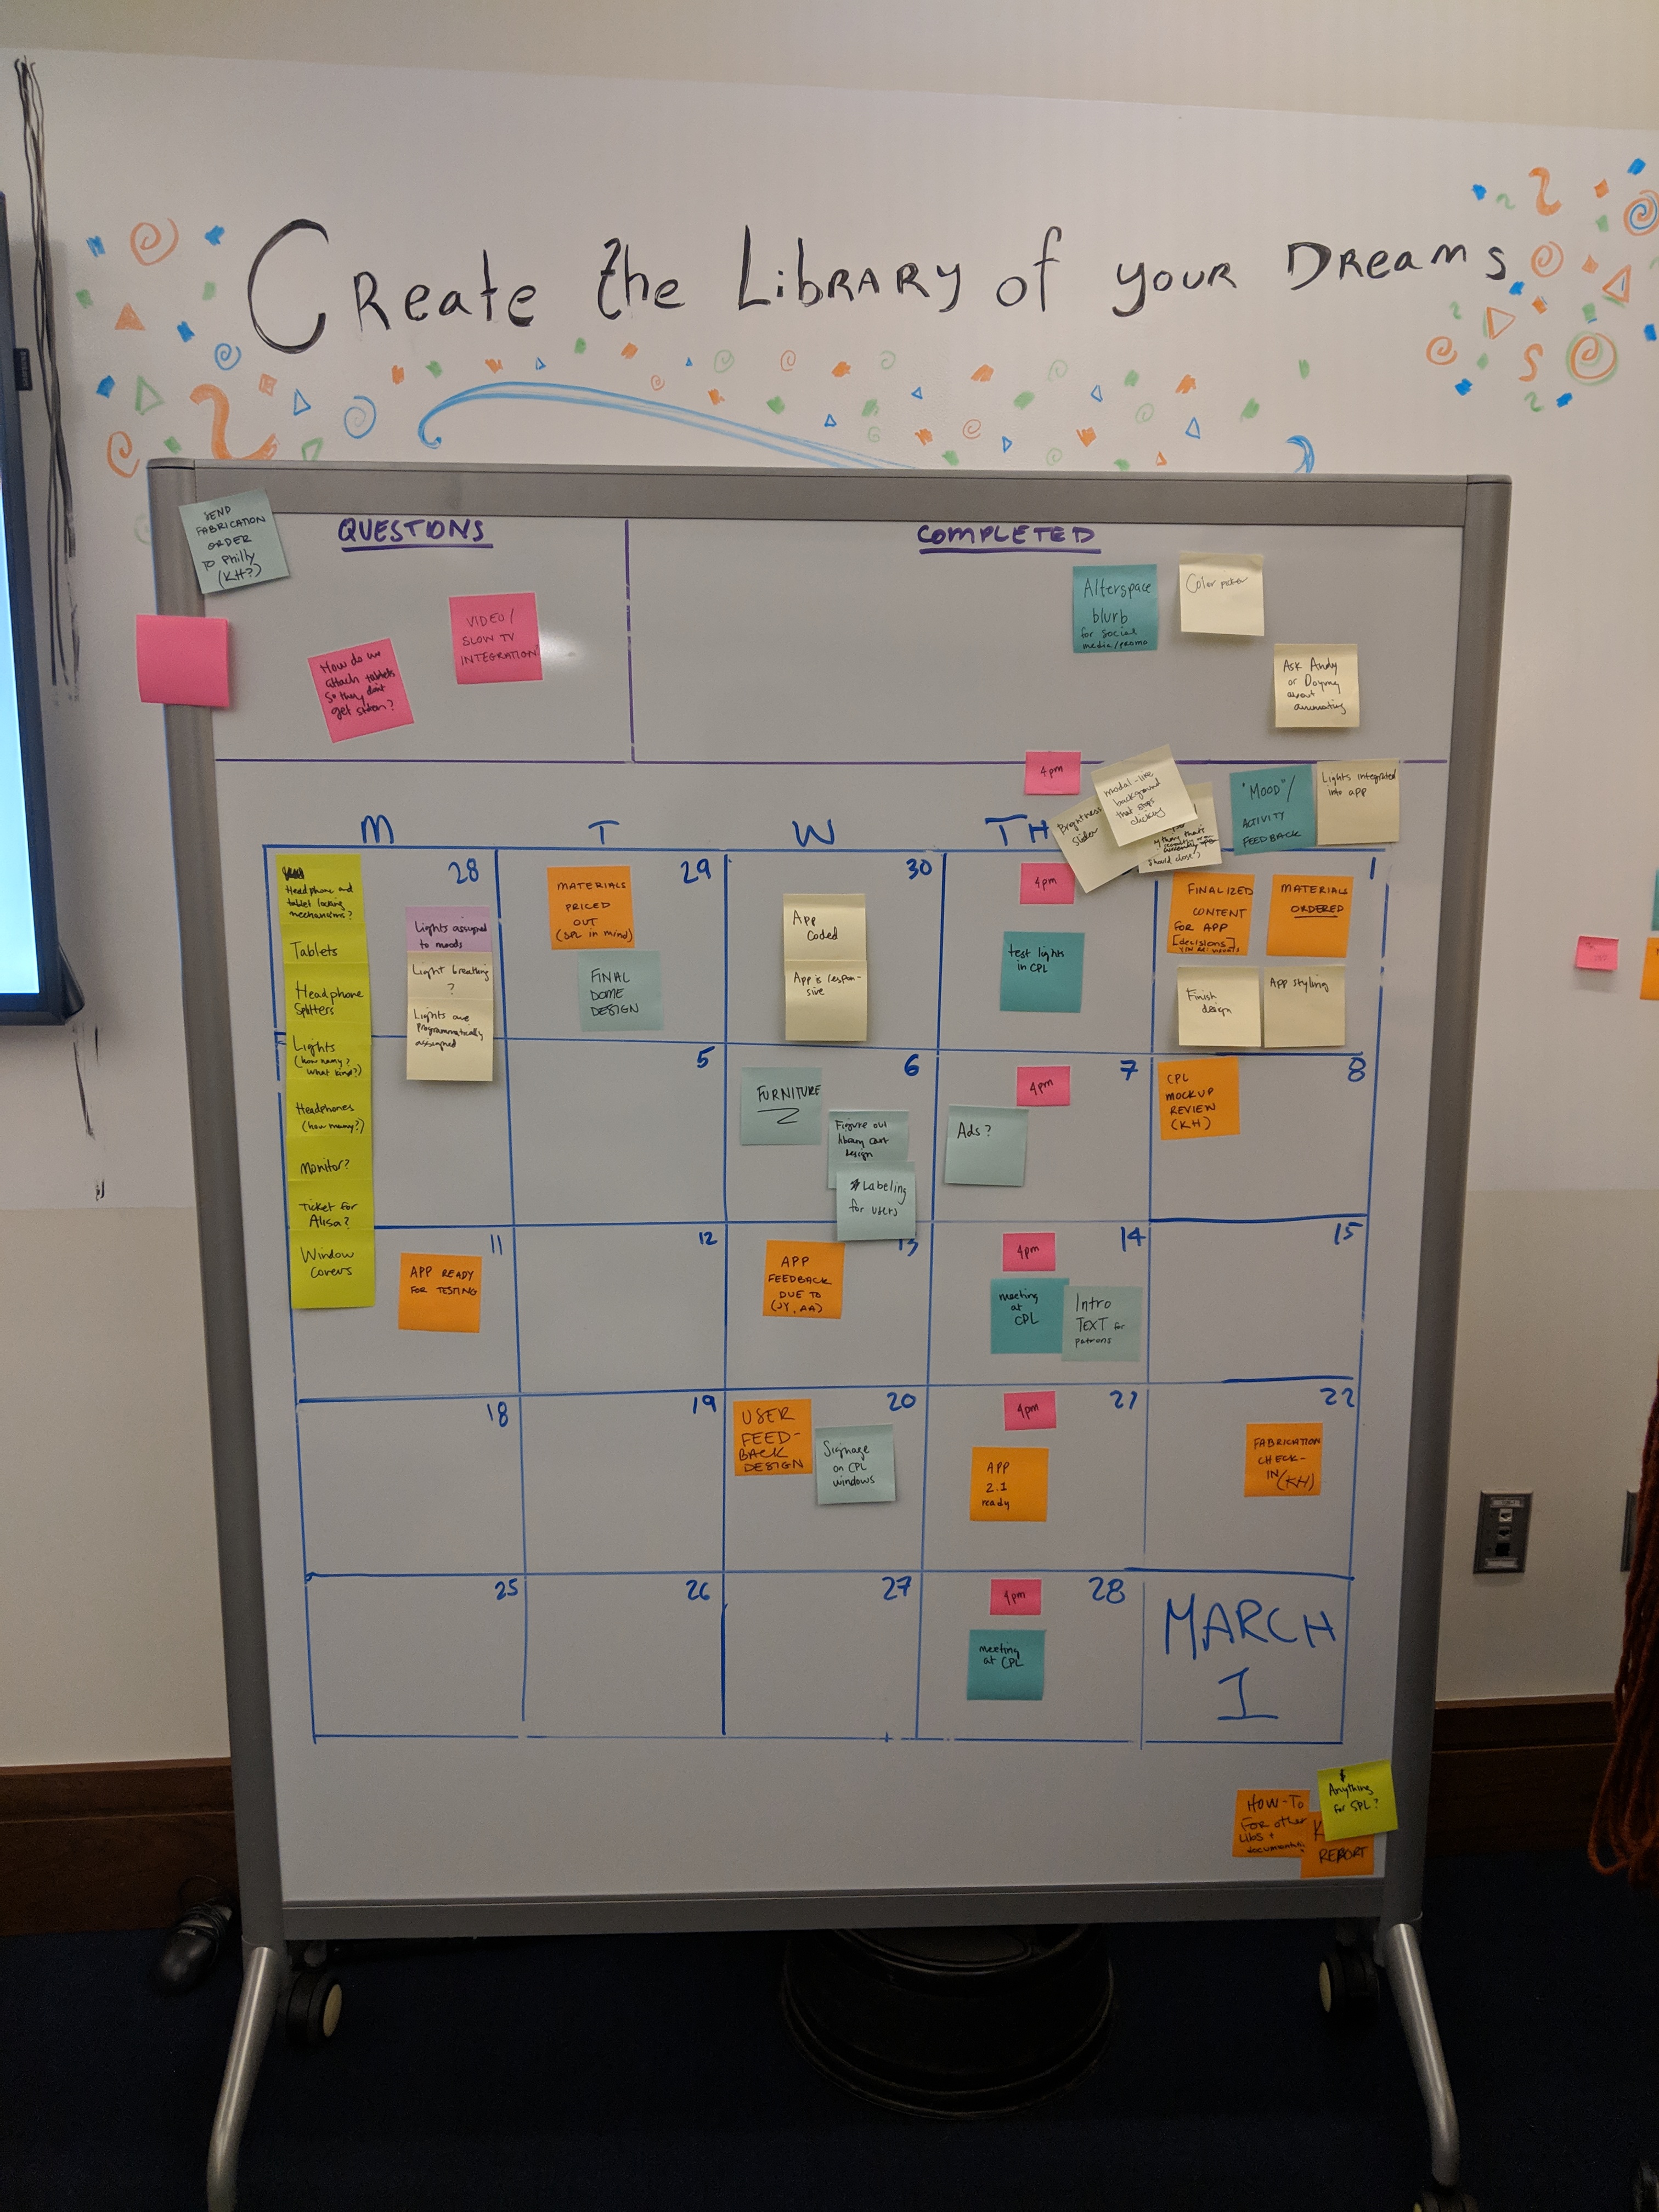 Create the Library of your Dreams
SEND
FABRICATION
ORDER
TO Philly
(KH?)
QUESTIONS
How do we
attach tablets
so they don't
get stolen?
VIDEO/
SLOW TV
INTEGRATION
COMPLETED
Alterspace
blurb
for social
media/promo
Color picker
Ask Andy
or
about
animating
4pm
Brightness
slider
Modal-like
background
that stops
clicking
should close?)
"MOOD"/
ACTIVITY
FEEDBACK
Lights integrated
into app
M T W TH
28
Headphone and
tablet locking
mechanisms?
Tablets
Headphone
Splitters
Lights
(how many?
what kind?)
Headphones
(how many?)
Monitor?
Ticket for
Alisa?
Window
Covers
Lights assigned
to moods
Light breathing
?
Lights are
programmatically
assigned
29
MATERIALS
PRICED
OUT
(SPL in mind)
FINAL
DOME
DESIGN
30
App
Coded
App is respon-
sive
4pm
test lights
in CPL
1
FINALIZED
CONTENT
FOR APP
[decisions]
MATERIALS
ORDERED
Finish
design
App styling
5
6
FURNITURE
Figure out
library cart
design
Labeling
for users
7
4pm
Ads?
8
CPL
MOCKUP
REVIEW
(KH)
11
APP READY
FOR TESTING
12
13
APP
FEEDBACK
DUE TO
(JY, AA)
14
4pm
meeting
at
CPL
Intro
TEXT for
patrons
15
18
19
20
USER
FEED-
BACK
DESIGN
Signage
on CPL
windows
21
4pm
APP
2.1
ready
22
FABRICATION
CHECK-
IN (KH)
25
26
27
28
4pm
meeting
at CPL
MARCH
1
HOW-TO
FOR other
Libs +
$
Anything
for SPL?
K
REPORT